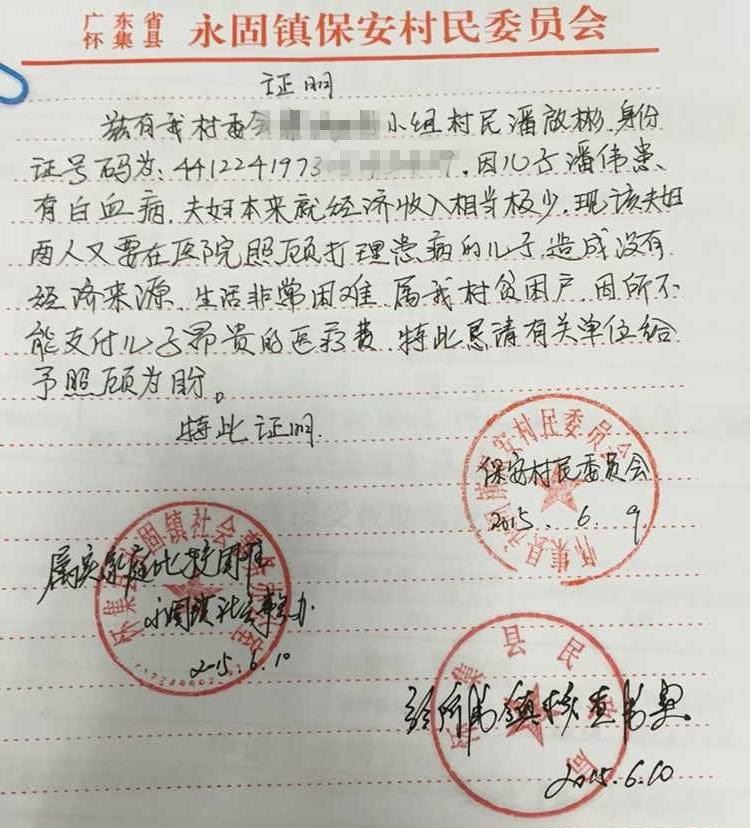 广东省
怀集县 永固镇保安村民委员会
证明
兹有我村委会 小组村民潘啟彬,身份
证号码为:4412241973 ,因儿子潘伟患
有白血病,夫妇本来就经济收入相当极少,现该夫妇
两人又要在医院照顾打理患病的儿子,造成没有
经济来源,生活非常困难,属我村贫困户,因所不
能支付儿子昂贵的医疗费,特此恳请有关单位给
予照顾为盼。
特此证明.
怀集县永固镇保安村民委员会
保安村民委员会
2015.6.9
怀集县永固镇社会事务办公室
属实家庭比较困难
永固镇社会事务办
2015.6.10
怀集县民政局
经所属镇核查属实.
2015.6.10